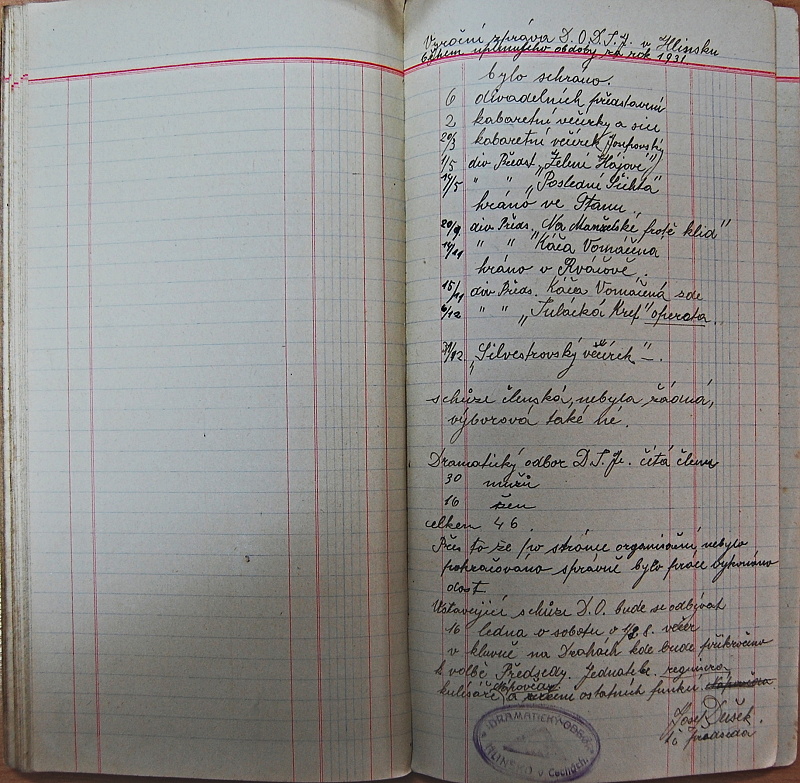 Výroční zpráva D.O.D.T.J. v Hlinsku
během uplynulého období za rok 1931.
bylo sehráno.
6 divadelních představení
2 kabaretní večírky a sice
20/3 kabaretní večírek
1/5 div Předst. „Zelení Hájové"
14/5 " " „Poslední Šichta"
hráno ve Stanu.
20/9. div Předs. „Na Manželské frotě klid"
14/11 " " Káča Vomáčená
hráno v Rváčově.
15/11 div Předs. Káča Vomáčená zde
6/12 " " „Tulácká Kref" opereta.
31/12 „Silvestrovský večírek".
schůze členská, nebyla řádná,
výborová také né.
Dramatický odbor D.T.J. čítá členů
30 mužů
16 žen
celkem 46.
Přes to že po stránce organisační nebylo
pokračováno správně bylo práce vykonáno
dost.
Ustavující schůze D.O. bude se odbývat
16 ledna o sobotu o 1/2 8. večer
v klubně na Drahách kde bude přikročeno
k volbě Předsedy. Jednatele. regiséra
kuliséře, Nápověday a ostatních funkcí.
Josef Dušek.
t.č. předseda
DRAMATICKÝ ODBOR
HLINSKO v Čechách.